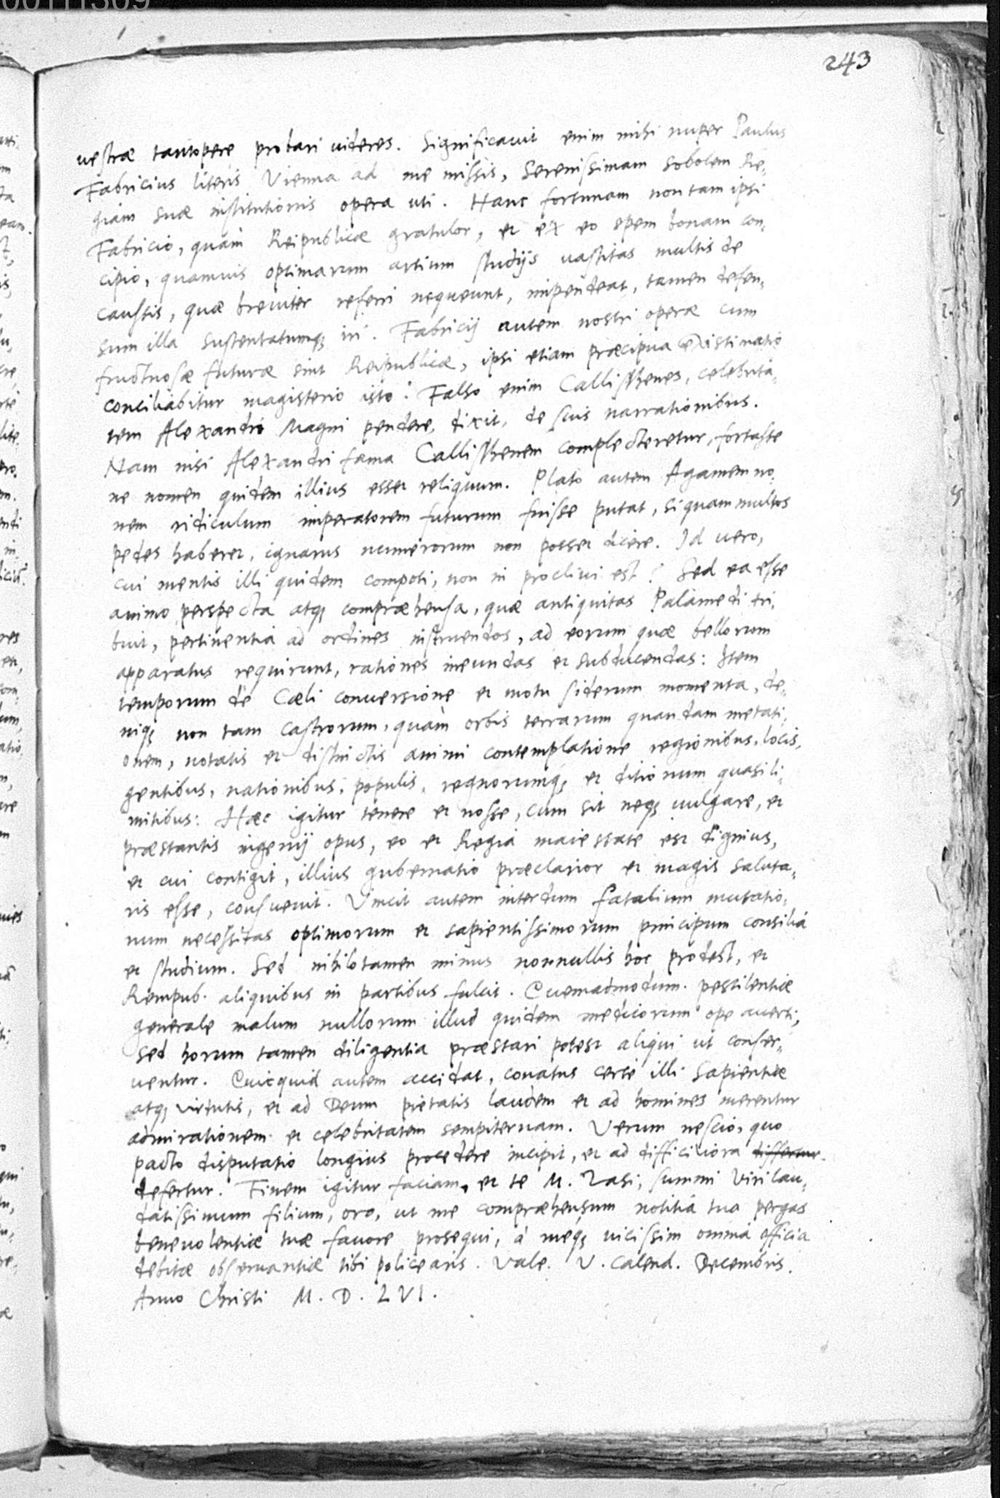 00111309
243
vestræ tantopere probari videres. Significavit enim mihi nuper Paulus
Fabricius literis Vienna ad me missis, Serenissimam sobolem Re,
giam suæ institutionis opera uti. Hanc fortunam non tam ipsi
Fabricio, quàm Reipublicæ gratulor, et ex eo spem bonam con,
cipio, quamvis optimarum artium studijs vastitas multis de
caussis, quæ breviter referri nequeunt, impendeat, tamen defen,
sum illa sustentatumq; iri. Fabricij autem nostri operæ cum
fructuosæ futuræ sint Reipublicæ, ipsi etiam præcipua existimatio
conciliabitur magisterio isto. Falso enim Callisthenes, celebrita,
tem Alexandri Magni pendere, dixit, de suis narrationibus.
Nam nisi Alexandri fama Callisthenem complecteretur, fortasse
ne nomen quidem illius esset reliquum. Plato autem Agamemno,
nem ridiculum imperatorem futurum fuisse putat, si quam multos
pedes haberet, ignarus numerorum non posset dicere. Id vero,
cui mentis illi quidem compoti, non in proclivi est? Sed ea esse
animo perspecta atq; compræhensa, quæ antiquitas Palamedi tri,
buit, pertinentia ad ordines instruendos, ad eorum quæ bellorum
apparatus requirunt, rationes ineundas et subducendas: Item
temporum de Cæli conversione et motu siderum momenta, de,
niq; non tam castrorum, quàm orbis terrarum quandam metati,
onem, notatis et distinctis animi contemplatione regionibus, locis,
gentibus, nationibus, populis, regnorumq; et ditionum quasi li,
mitibus: Hæc igitur tenere et nosse, cum sit neq; vulgare, et
præstantis ingenij opus, eo et Regia maiestate est dignius,
et cui contigit, illius gubernatio præclarior et magis saluta,
ris esse, consuevit. Vincit autem interdum fatalium mutatio,
num necessitas optimorum et sapientissimorum principum consilia
et studium. Sed nihilotamen minus nonnullis hoc prodest, et
Rempub. aliquibus in partibus fulcit. Quemadmodum pestilentiæ
generale malum nullorum illud quidem medicorum ope averti,
sed horum tamen diligentia præstari potest aliqui ut conser,
ventur. Quicquid autem accidat, conatus certè illi sapientiæ
atq; virtutis, et ad Deum pietatis laudem et ad homines merentur
admirationem et celebritatem sempiternam. Verum nescio, quo
pacto disputatio longius procedere incipit, et ad difficiliora
defertur. Finem igitur faciam, et te M. Zasi, summi viri lau,
datissimum filium, oro, ut me compræhensum notitia tua pergas
benevolentiæ tuæ favore prosequi, à meq; vicissim omnia officia
debitæ observantiæ tibi policearis. Vale. V. Calend. Decembris.
Anno Christi M. D. LVI.